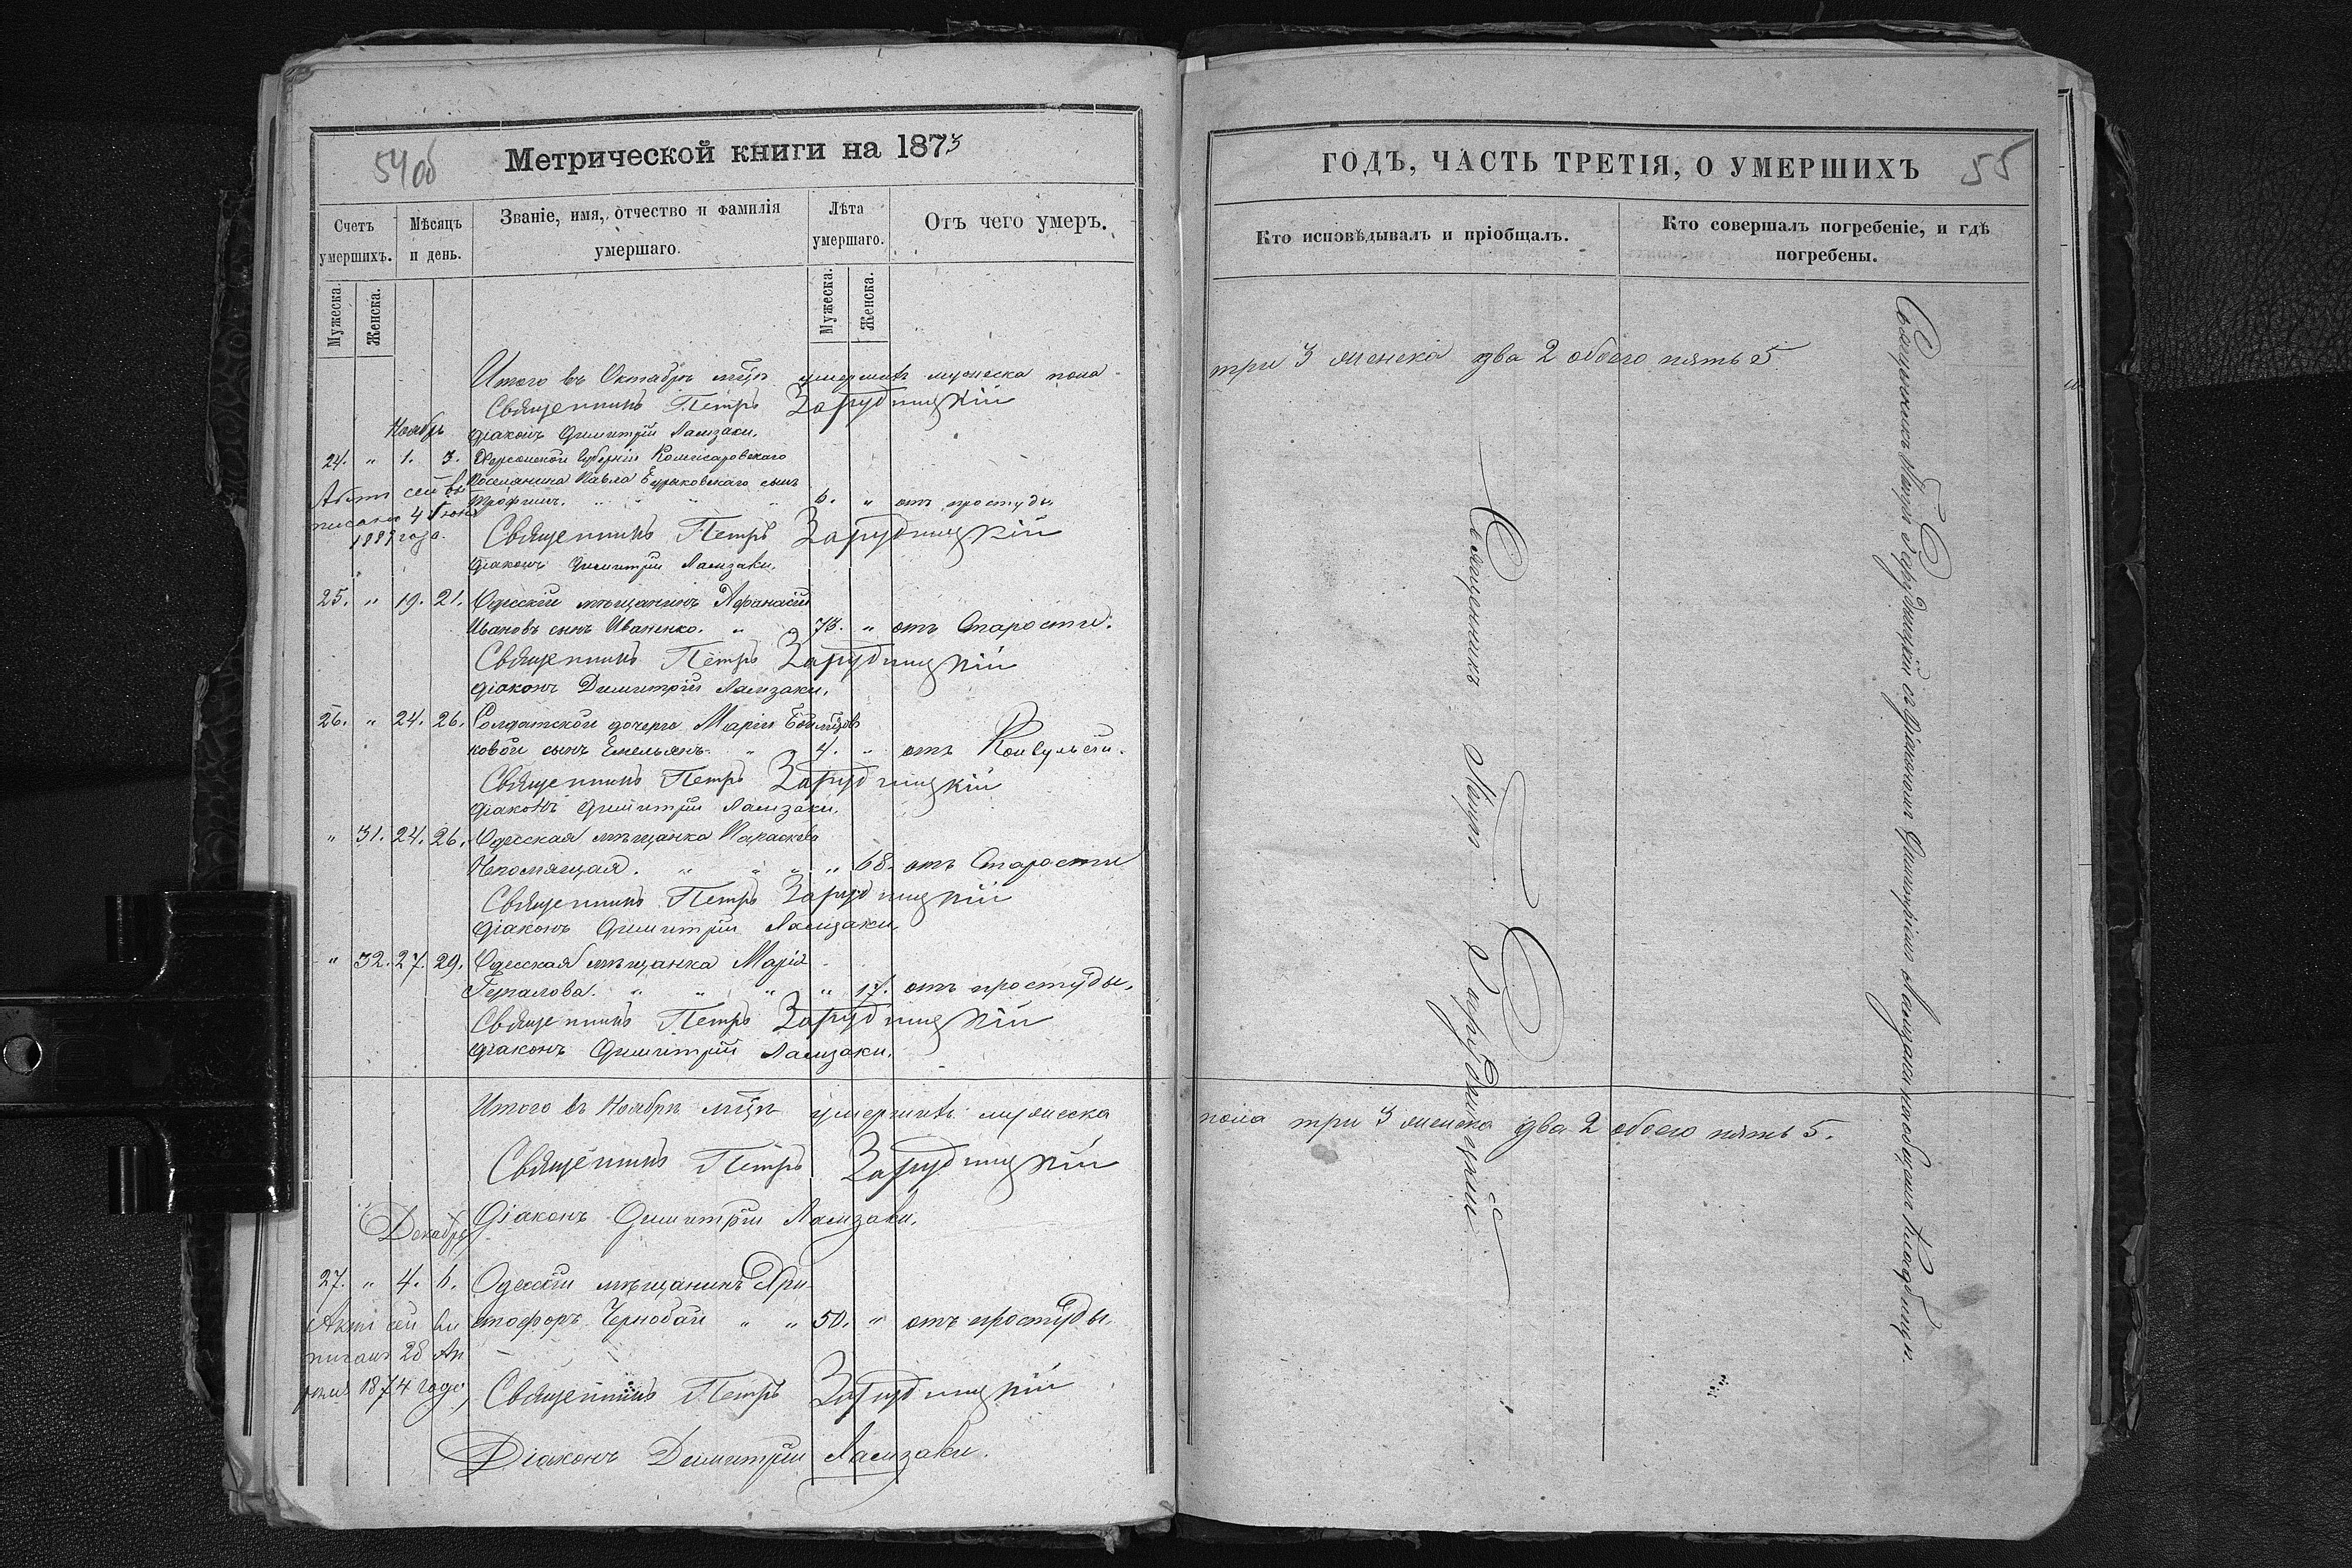 54об
Метрической книги на 1873
Счетъ умершихъ.
Мѣсяцъ и день.
Званіе, имя, отчество и фамилія умершаго.
Лѣта умершаго.
Отъ чего умеръ.
Мужеска.
Женска.
Мужеска.
Женска.
Итого въ Октябрѣ мцѣ умершихъ мужеска пола
Священникъ Петръ Зарудницкій
Ноябрь
діаконъ Димитрій Ламзаки.
24. " 1. 3. Херсонской Губерніи Комисаровскаго
Поселянина Павла Бураковскаго сынъ
Актъ сей вы
Трофимъ. " " 6. " отъ простуды
писанъ 4 Іюня
1887 года.
Священникъ Петръ Зарудницкій
діаконъ Димитрій Ламзаки.
25. " 19. 21. Одесскій мѣщанинъ Афанасій
Ивановъ сынъ Иваненко. " 73. " отъ Старости.
Священникъ Петръ Зарудницкій
діаконъ Димитрій Ламзаки.
26. " 24. 26. Солдатской дочери Маріи
ковой сынъ Емельянъ. " 4. " отъ Конвульсіи.
Священникъ Петръ Зарудницкій
діаконъ Димитрій Ламзаки.
" 31. 24. 26. Одесская мѣщанка Параскева
Непомнящая. " " " " 68. отъ Старости
Священникъ Петръ Зарудницкій
діаконъ Димитрій Ламзаки.
" 32. 27. 29. Одесская мѣщанка Марія
" " " " 17. отъ простуды.
Священникъ Петръ Зарудницкій
діаконъ Димитрій Ламзаки.
Итого въ Ноябрѣ мцѣ умершихъ мужеска
Священникъ Петръ Зарудницкій
Діаконъ Димитрій Ламзаки.
Декабрь
27. " 4. 6. Одесскій мѣщанинъ Хри
стофоръ Чернобай " " 50. " отъ простуды.
Актъ сей вы
писанъ 28 Ап
рѣля 1874 года,
Священникъ Петръ Зарудницкій
Діаконъ Димитрій Ламзаки.
ГОДЪ, ЧАСТЬ ТРЕТІЯ, О УМЕРШИХЪ
55
Кто исповѣдывалъ и пріобщалъ.
Кто совершалъ погребеніе, и гдѣ погребены.
три 3 женска два 2 обоего пять 5
Священникъ Петръ Зарудницкій
Священникъ Петръ Зарудницкій съ діакономъ Димитріемъ Ламзаки на общемъ кладбищѣ.
пола три 3 женска два 2 обоего пять 5.